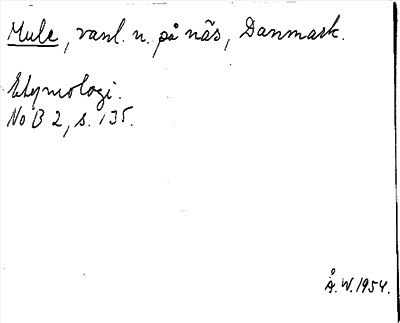 Mule, vanl. n. på näs, Danmark.
Etymologi.
No B 2, s. 135.
Å. W. 1954.